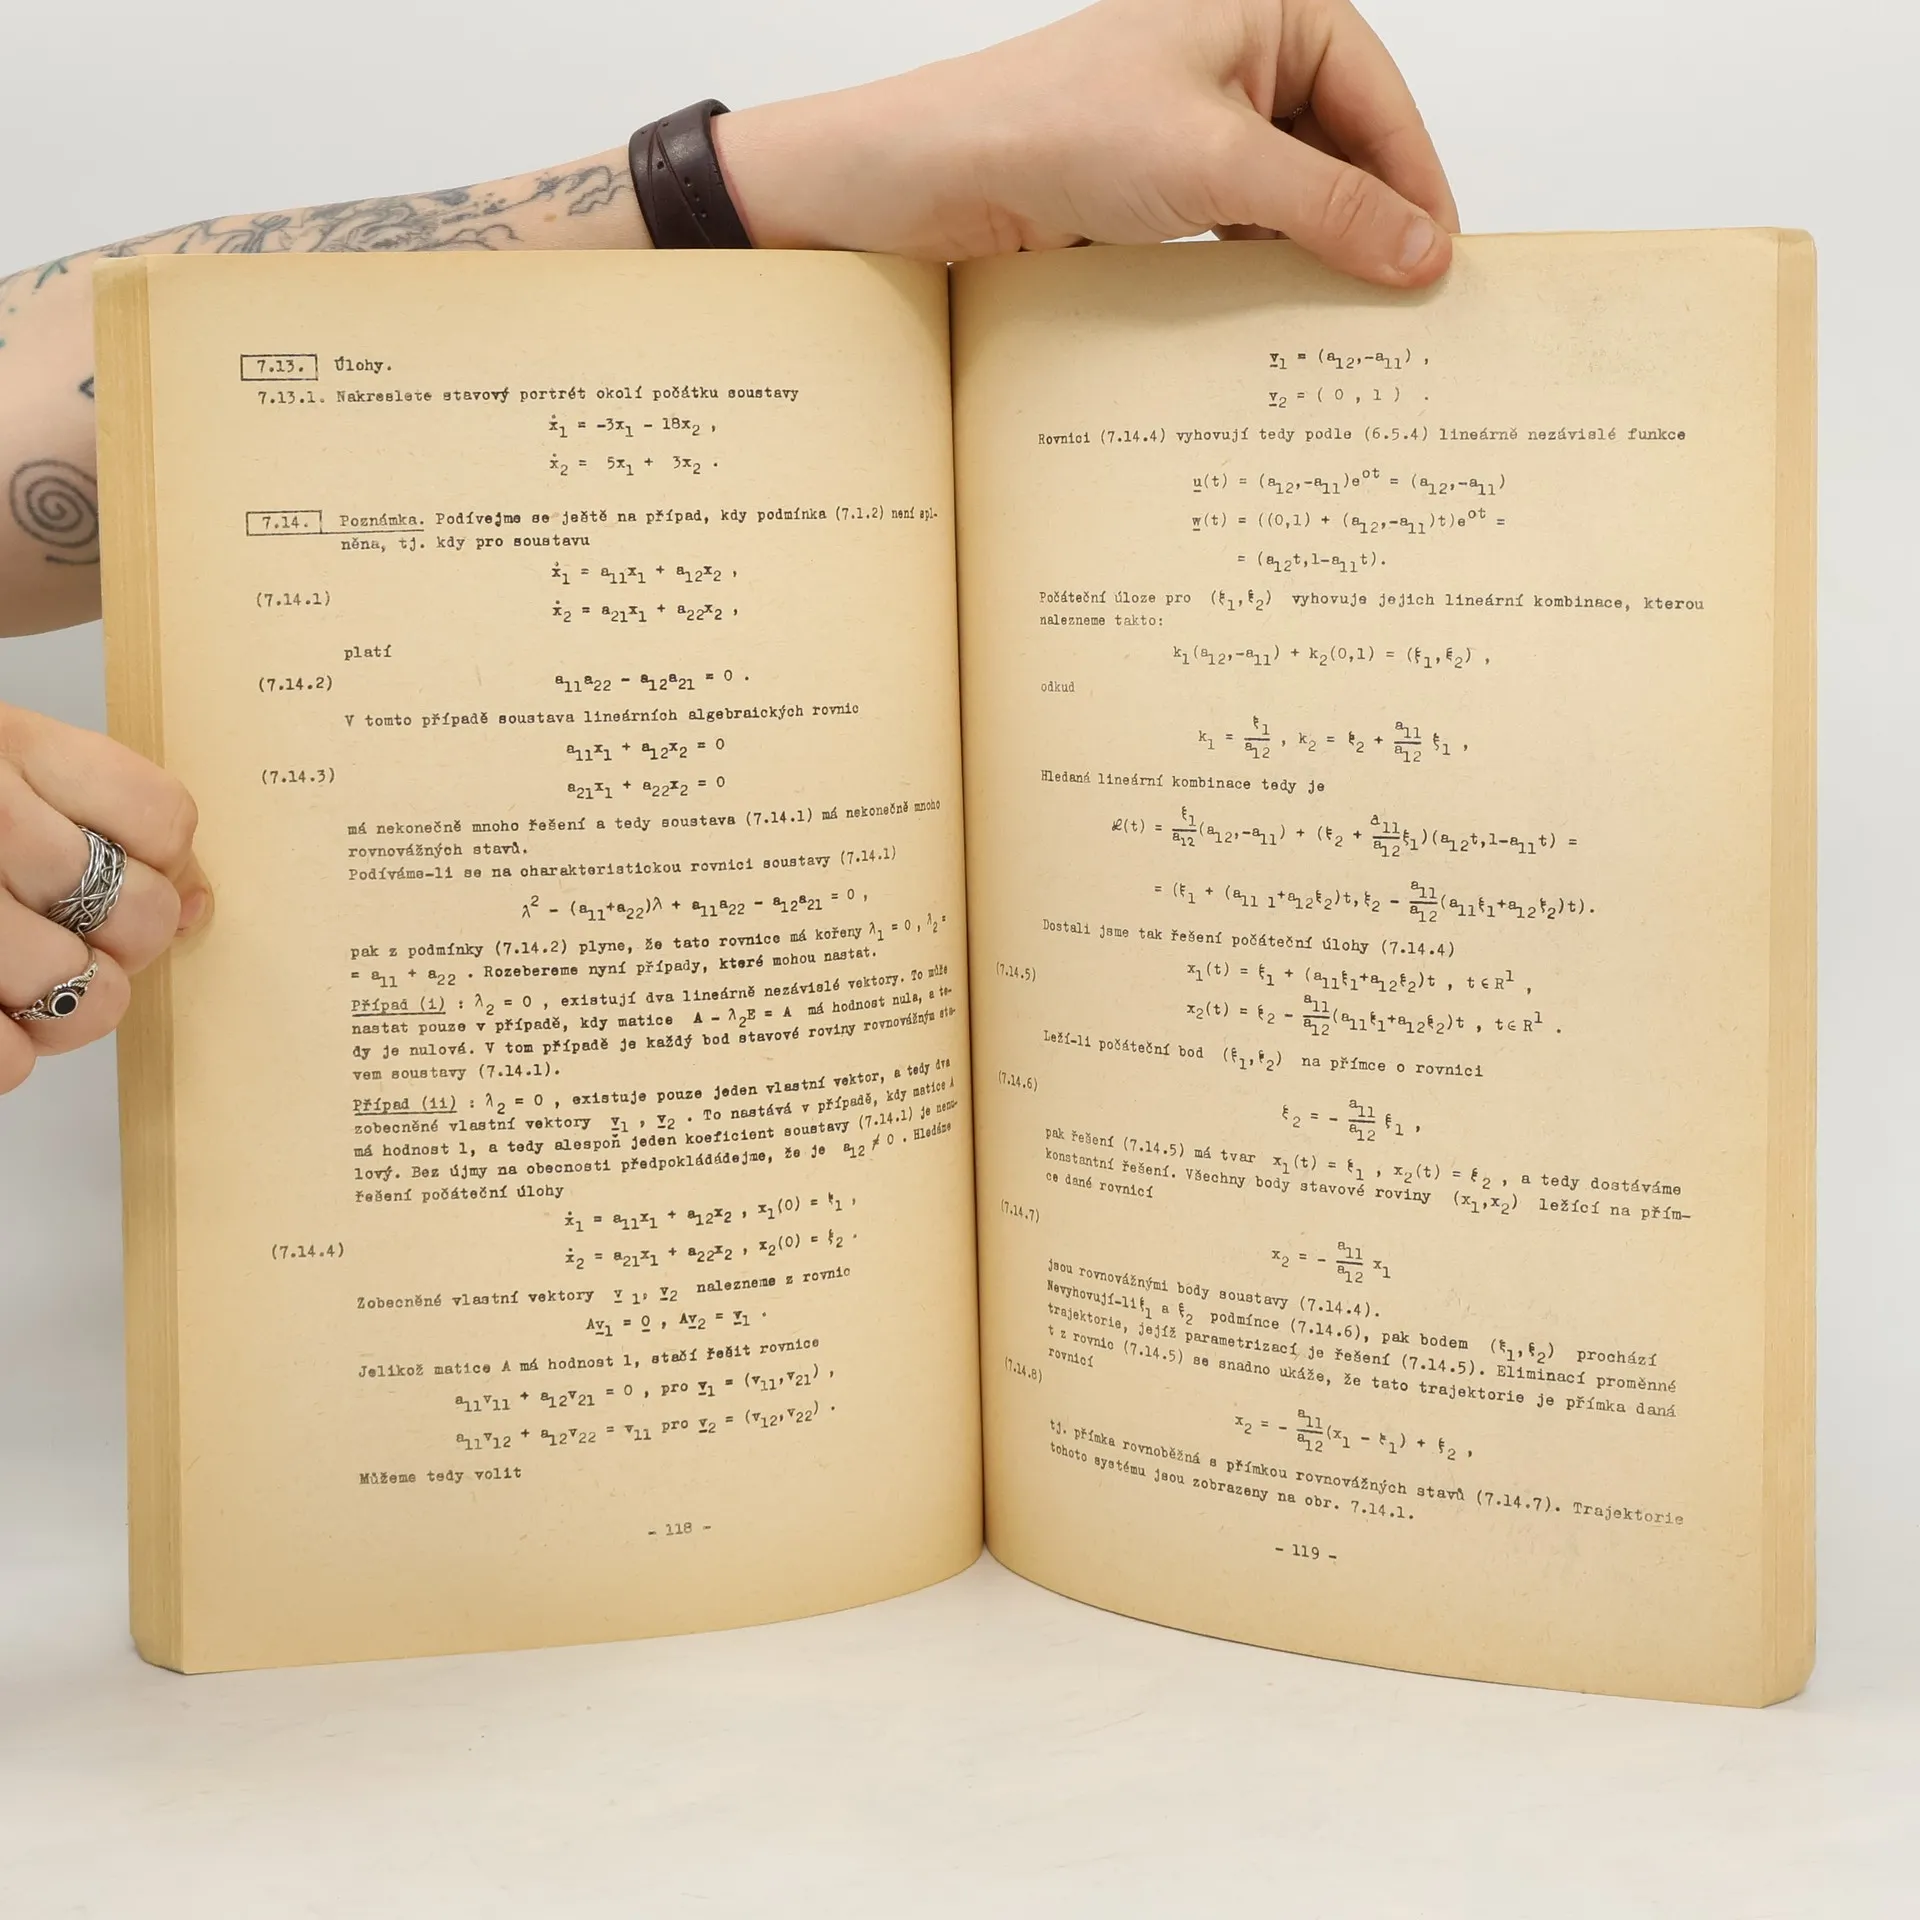 7.13. Úlohy.
7.13.1. Nakreslete stavový portrét okolí počátku soustavy
ẋ₁ = -3x₁ - 18x₂ ,
ẋ₂ = 5x₁ + 3x₂ .
7.14. Poznámka. Podívejme se ještě na případ, kdy podmínka (7.1.2) není spl-
něna, tj. kdy pro soustavu
ẋ₁ = a₁₁x₁ + a₁₂x₂ ,
(7.14.1)
ẋ₂ = a₂₁x₁ + a₂₂x₂ ,
platí
(7.14.2) a₁₁a₂₂ - a₁₂a₂₁ = 0 .
V tomto případě soustava lineárních algebraických rovnic
a₁₁x₁ + a₁₂x₂ = 0
(7.14.3)
a₂₁x₁ + a₂₂x₂ = 0
má nekonečně mnoho řešení a tedy soustava (7.14.1) má nekonečně mnoho
rovnovážných stavů.
Podíváme-li se na charakteristickou rovnici soustavy (7.14.1)
λ² - (a₁₁+a₂₂)λ + a₁₁a₂₂ - a₁₂a₂₁ = 0 ,
pak z podmínky (7.14.2) plyne, že tato rovnice má kořeny λ₁ = 0 , λ₂ =
= a₁₁ + a₂₂ . Rozebereme nyní případy, které mohou nastat.
Případ (i) : λ₂ = 0 , existují dva lineárně nezávislé vektory. To může
nastat pouze v případě, kdy matice A - λ₂E = A má hodnost nula, a te-
dy je nulová. V tom případě je každý bod stavové roviny rovnovážným sta-
vem soustavy (7.14.1).
Případ (ii) : λ₂ = 0 , existuje pouze jeden vlastní vektor, a tedy dva
zobecněné vlastní vektory v₁ , v₂ . To nastává v případě, kdy matice A
má hodnost 1, a tedy alespoň jeden koeficient soustavy (7.14.1) je nenu-
lový. Bez újmy na obecnosti předpokládádejme, že je a₁₂ ≠ 0 . Hledáme
řešení počáteční úlohy
ẋ₁ = a₁₁x₁ + a₁₂x₂ , x₁(0) = ξ₁ ,
(7.14.4)
ẋ₂ = a₂₁x₁ + a₂₂x₂ , x₂(0) = ξ₂ .
Zobecněné vlastní vektory v₁, v₂ nalezneme z rovnic
Av₁ = 0 , Av₂ = v₁ .
Jelikož matice A má hodnost 1, stačí řešit rovnice
a₁₁v₁₁ + a₁₂v₂₁ = 0 , pro v₁ = (v₁₁,v₂₁) ,
a₁₁v₁₂ + a₁₂v₂₂ = v₁₁ pro v₂ = (v₁₂,v₂₂) .
Můžeme tedy volit
- 118 -
v₁ = (a₁₂,-a₁₁) ,
v₂ = ( 0 , 1 ) .
Rovnici (7.14.4) vyhovují tedy podle (6.5.4) lineárně nezávislé funkce
u(t) = (a₁₂,-a₁₁)e^ot = (a₁₂,-a₁₁)
w(t) = ((0,1) + (a₁₂,-a₁₁)t)e^ot =
= (a₁₂t,1-a₁₁t).
Počáteční úloze pro (ξ₁,ξ₂) vyhovuje jejich lineární kombinace, kterou
nalezneme takto:
k₁(a₁₂,-a₁₁) + k₂(0,1) = (ξ₁,ξ₂) ,
odkud
k₁ = ξ₁/a₁₂ , k₂ = ξ₂ + a₁₁/a₁₂ ξ₁ ,
Hledaná lineární kombinace tedy je
æ(t) = ξ₁/a₁₂(a₁₂,-a₁₁) + (ξ₂ + a₁₁/a₁₂ξ₁)(a₁₂t,1-a₁₁t) =
= (ξ₁ + (a₁₁ ₁+a₁₂ξ₂)t,ξ₂ - a₁₁/a₁₂(a₁₁ξ₁+a₁₂ξ₂)t).
Dostali jsme tak řešení počáteční úlohy (7.14.4)
(7.14.5) x₁(t) = ξ₁ + (a₁₁ξ₁+a₁₂ξ₂)t , t∈R¹ ,
x₂(t) = ξ₂ - a₁₁/a₁₂(a₁₁ξ₁+a₁₂ξ₂)t , t∈R¹ .
Leží-li počáteční bod (ξ₁,ξ₂) na přímce o rovnici
(7.14.6)
ξ₂ = - a₁₁/a₁₂ ξ₁ ,
pak řešení (7.14.5) má tvar x₁(t) = ξ₁ , x₂(t) = ξ₂ , a tedy dostáváme
konstantní řešení. Všechny body stavové roviny (x₁,x₂) ležící na přím-
ce dané rovnicí
(7.14.7)
x₂ = - a₁₁/a₁₂ x₁
jsou rovnovážnými body soustavy (7.14.4).
Nevyhovují-liξ₁ a ξ₂ podmínce (7.14.6), pak bodem (ξ₁,ξ₂) prochází
trajektorie, jejíž parametrizací je řešení (7.14.5). Eliminací proměnné
t z rovnic (7.14.5) se snadno ukáže, že tato trajektorie je přímka daná
rovnicí
(7.14.8)
x₂ = - a₁₁/a₁₂(x₁ - ξ₁) + ξ₂ ,
tj. přímka rovnoběžná s přímkou rovnovážných stavů (7.14.7). Trajektorie
tohoto systému jsou zobrazeny na obr. 7.14.1.
- 119 -